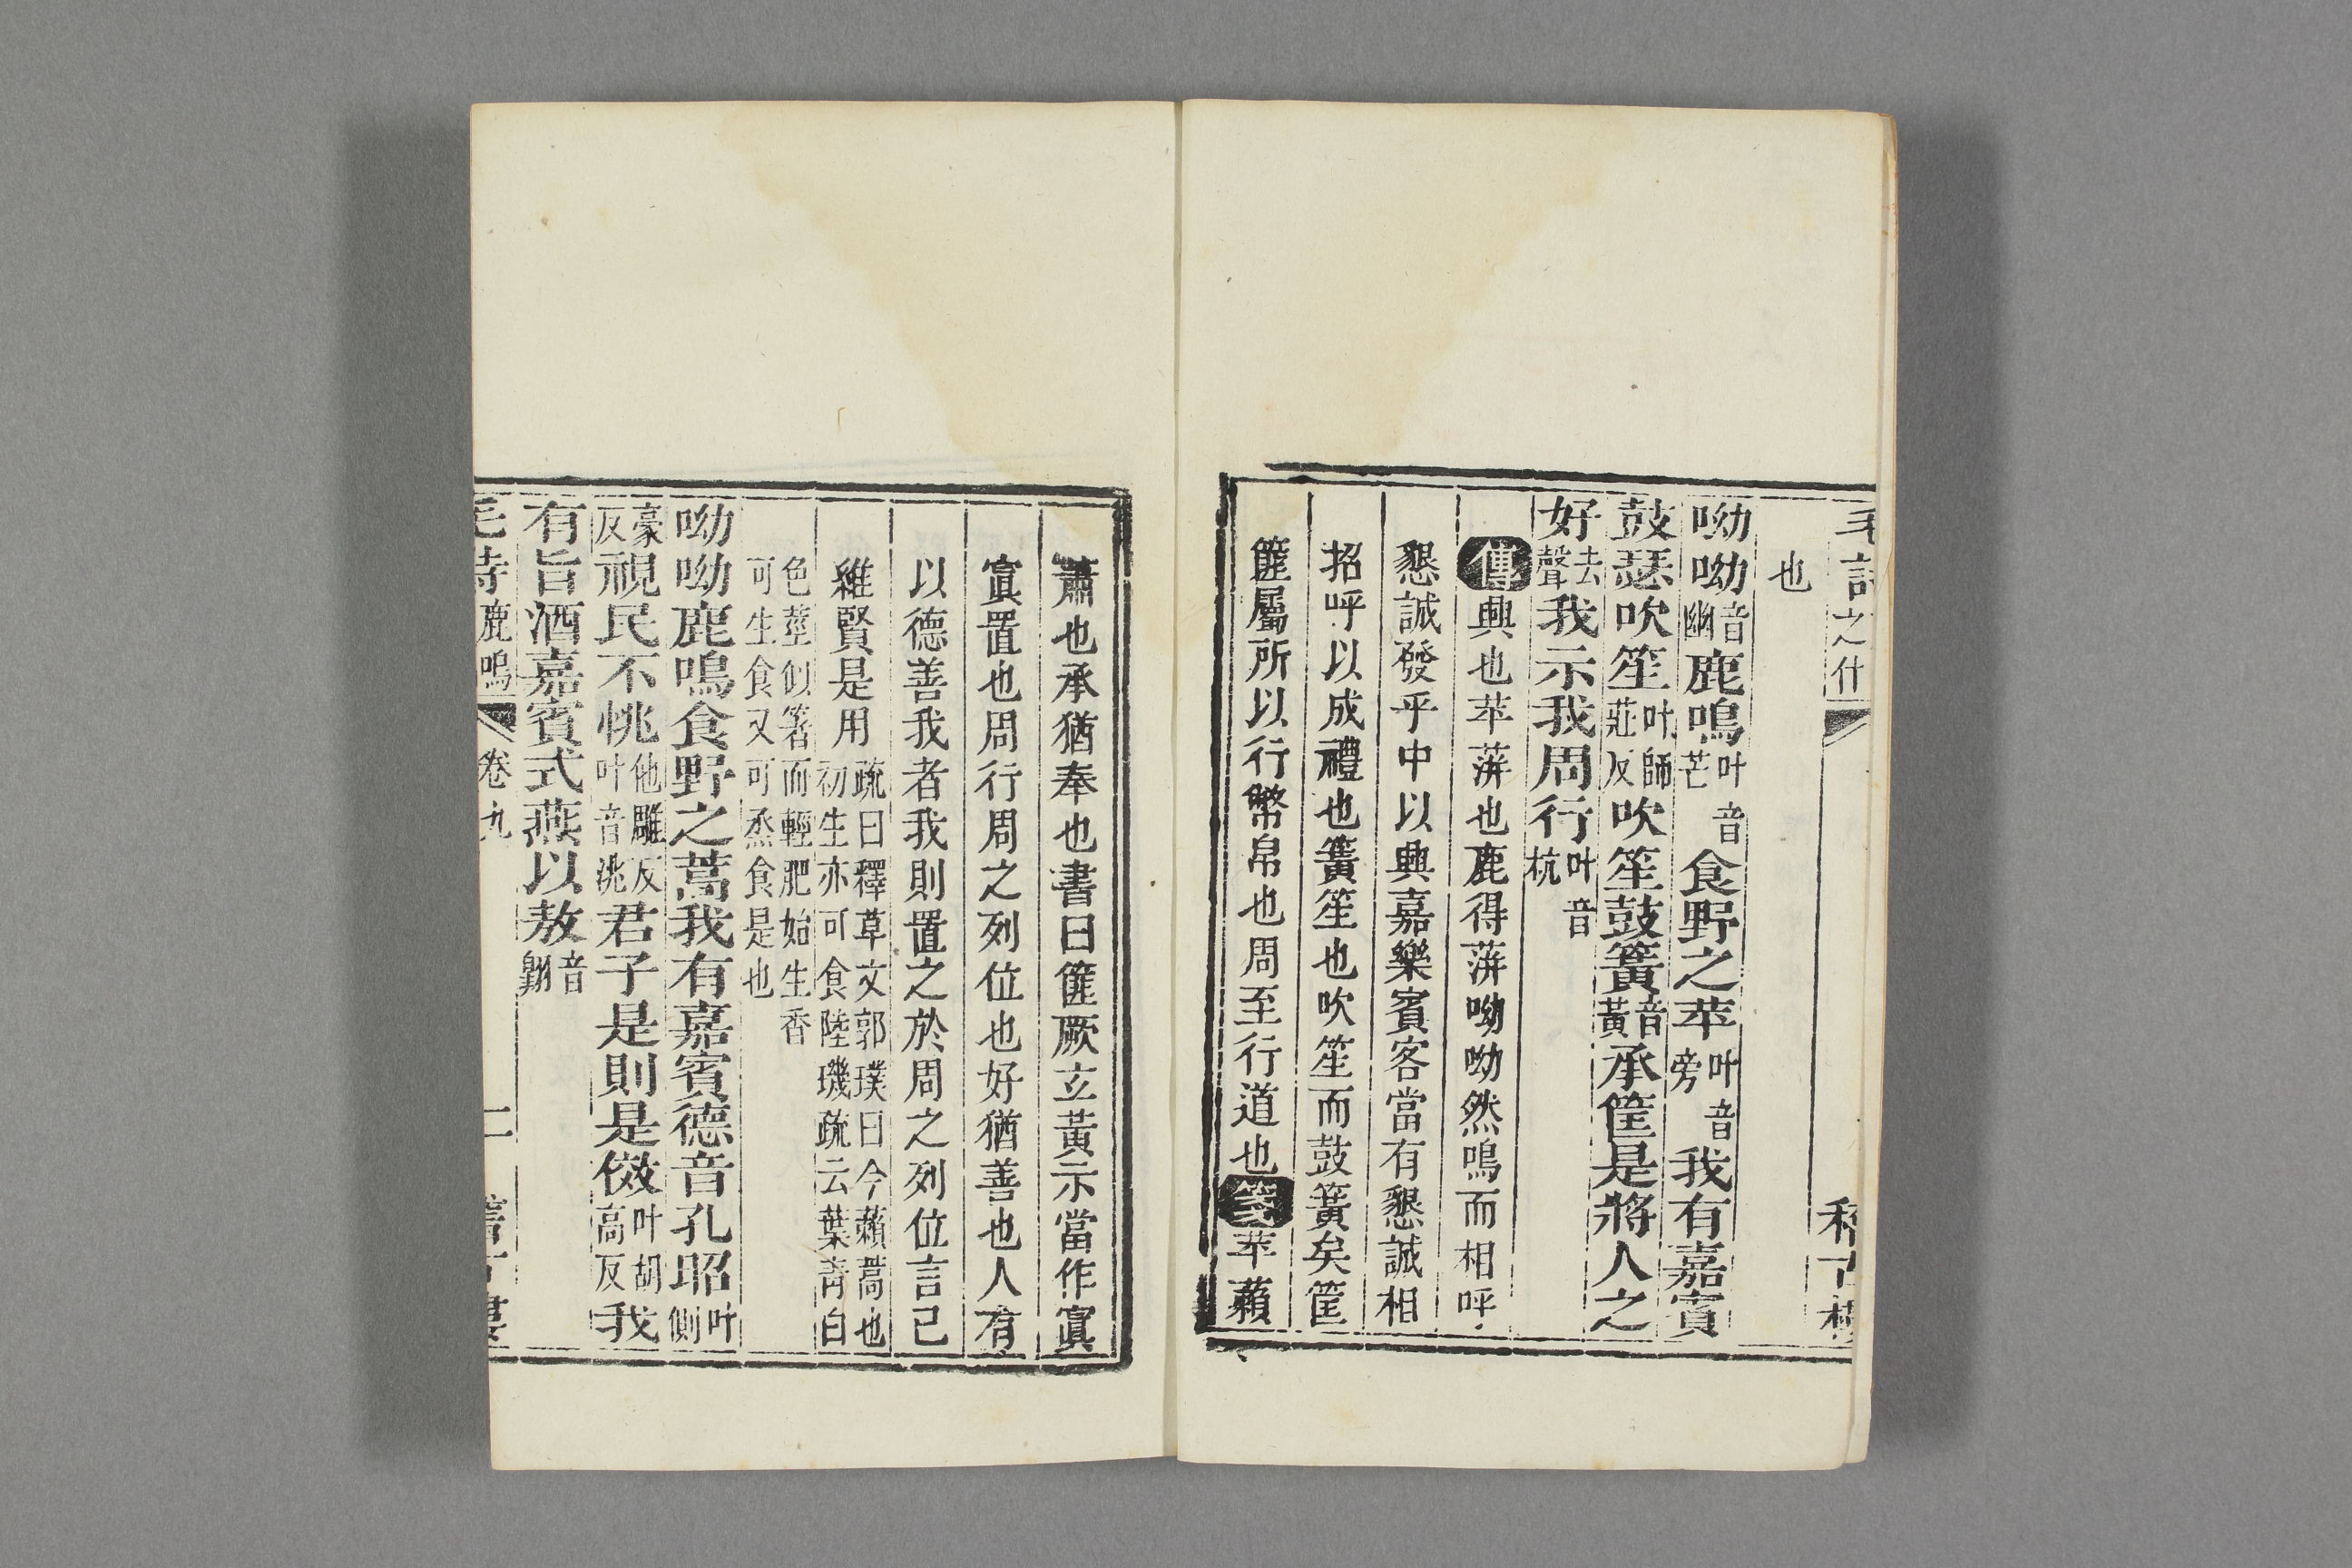 毛詩之什 稽古樓
也
呦呦音幽鹿鳴叶音芒食野之苹叶音旁我有嘉賓
鼓瑟吹笙叶師莊反吹笙鼓簧音黃承筐是將人之
好去聲我示我周行叶音杭
傳興也苹蓱也鹿得蓱呦呦然鳴而相呼
懇誠發乎中以興嘉樂賓客當有懇誠相
招呼以成禮也簧笙也吹笙而鼓簧矣筐
篚屬所以行幣帛也周至行道也箋苹藾
蕭也承猶奉也書曰篚厥玄黃示當作寘
寘置也周行周之列位也好猶善也人有
以德善我者我則置之於周之列位言己
維賢是用疏曰釋草文郭璞曰今藾蒿也初生亦可食陸璣疏云葉青白
色莖似箸而輕肥始生香可生食又可烝食是也
呦呦鹿鳴食野之蒿我有嘉賓德音孔昭叶側
豪反視民不恌他雕反叶音洮君子是則是傚叶胡高反我
有旨酒嘉賓式燕以敖音翺
毛詩鹿鳴 卷九 二 稽古樓